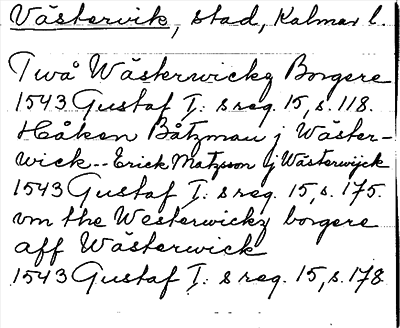 Västervik, stad, Kalmar l.
Twå Wästerwickz Borgere
1543 Gustaf I: s reg. 15, s. 118.
Håken Båtzman j Wäster-
wick -- Erick Matzson ij Wästerwijck
1543 Gustaf I: s reg. 15, s. 175.
vm the Westerwickz borgere
aff Wästerwick
1543 Gustaf I: s reg. 15, s. 178